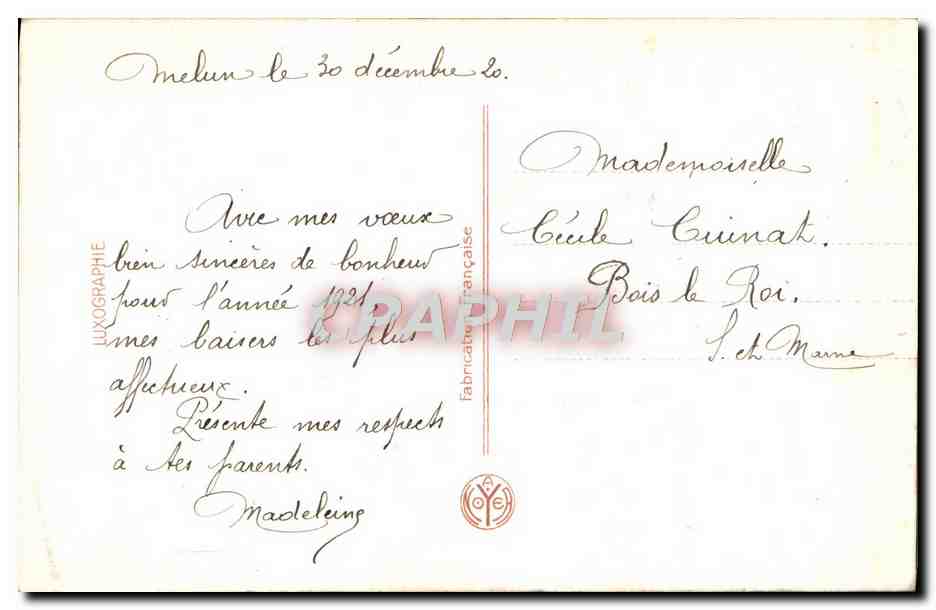 Melun le 30 décembre 20.
Avec mes vœux
bien sincères de bonheur
pour l'année 1921,
mes baisers les plus
affectueux.
Présente mes respects
à tes parents.
Madeleine
Mademoiselle
Cécile Cuinat.
Bois le Roi.
S. et Marne
LUXOGRAPHIE
Fabrication Française
CPAPHIL